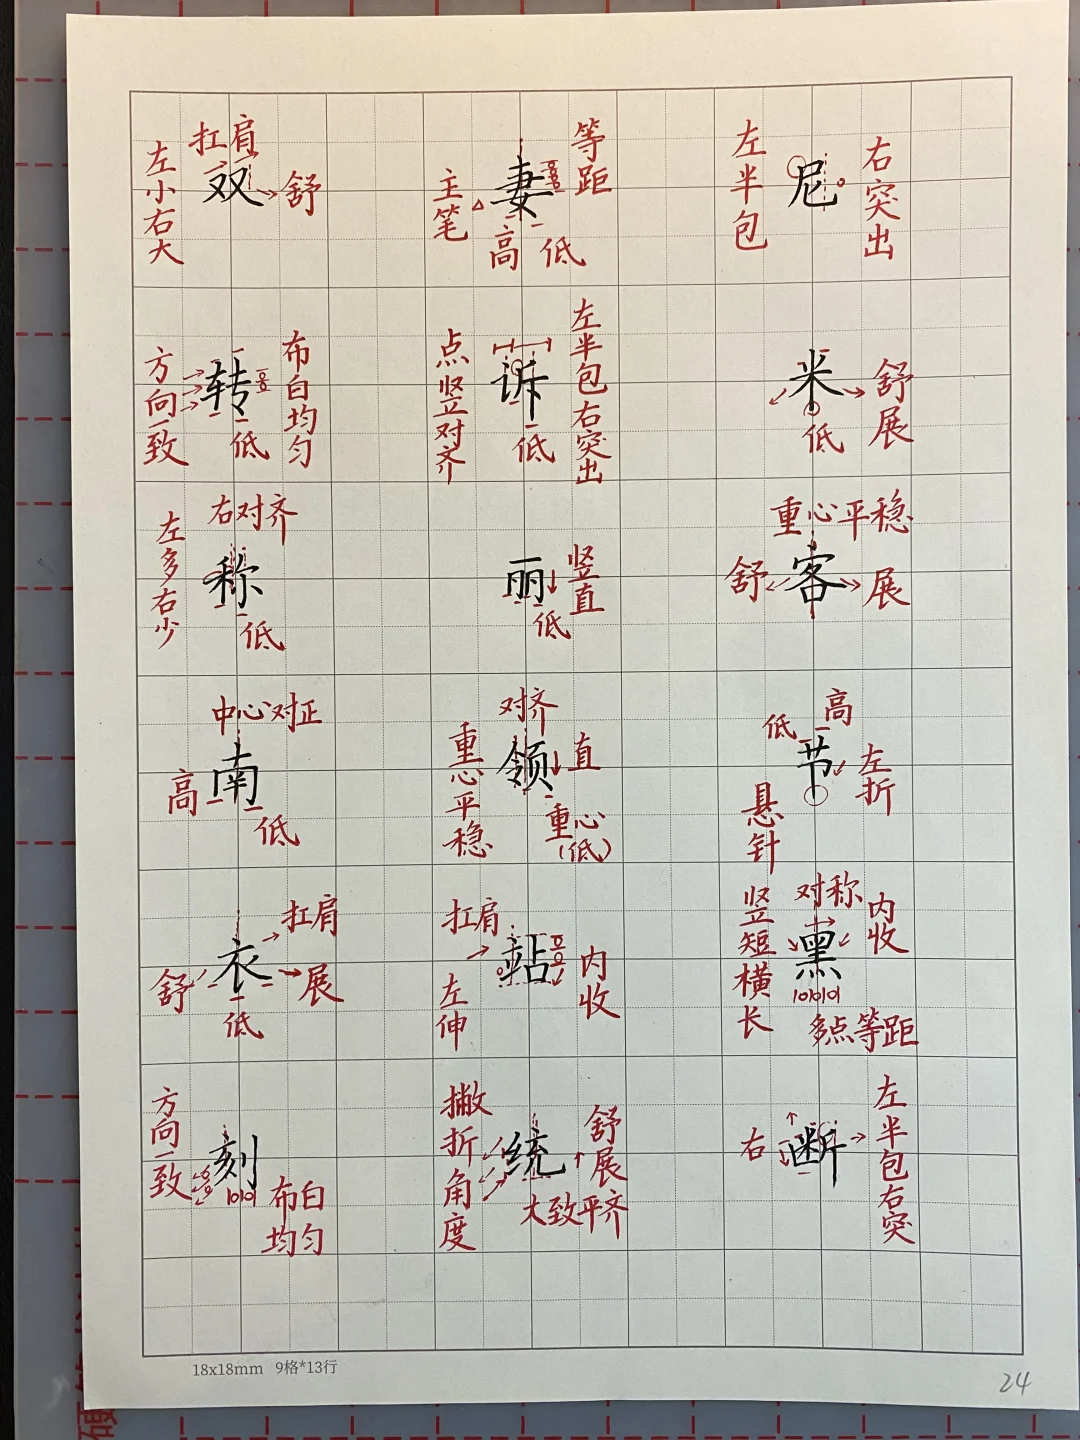 扛肩
左小右大
双
舒
等距
主笔
妻
高 低
左半包
尼
右突出
方向一致
转
布白均匀
低
点竖对齐
诉
左半包右突出
低
米
舒展
低
右对齐
左多右少
称
低
丽
竖直
低
重心平稳
舒
客
展
中心对正
南
高
低
对齐
重心平稳
领
直
重心
(低)
低 高
节
左折
悬针
衣
扛肩
舒
展
低
扛肩
站
左伸
内收
对称
竖短横长
黑
内收
多点等距
方向一致
刻
布白
均匀
撇折角度
统
舒展
大致平齐
右
断
左半包右突
18x18mm 9格*13行
24
硬